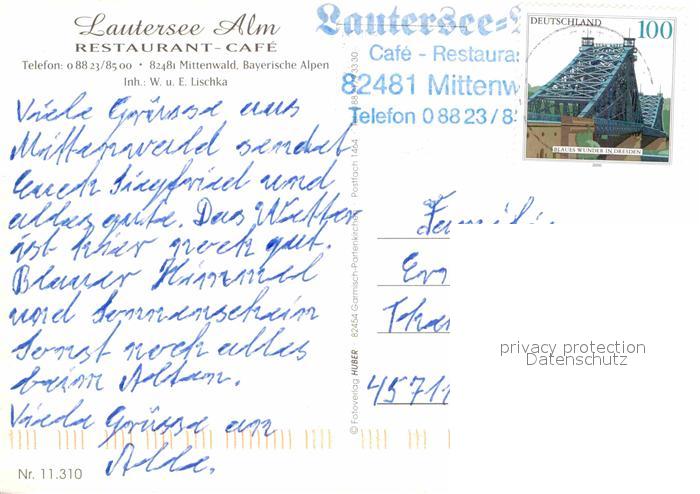 Lautersee Alm
RESTAURANT-CAFÉ
Telefon: 0 88 23/85 00 • 82481 Mittenwald, Bayerische Alpen
Inh.: W. u. E. Lischka
Viele Grüsse aus
Mittenwald sendet
Euch Siegfried und
alles gute. Das Wetter
ist hier noch gut.
Blauer Himmel
und Sonnenschein
Sonst noch alles
beim Alten.
Viele Grüsse an
Alle.
Nr. 11.310
© Fotoverlag HUBER 82454 Garmisch-Partenkirchen Postfach 1464
Lautersee-
Café - Restaura
82481 Mittenw
Telefon 0 88 23 / 8
DEUTSCHLAND 100
BLAUES WUNDER IN DRESDEN
2000
Famili
45711
privacy protection
Datenschutz